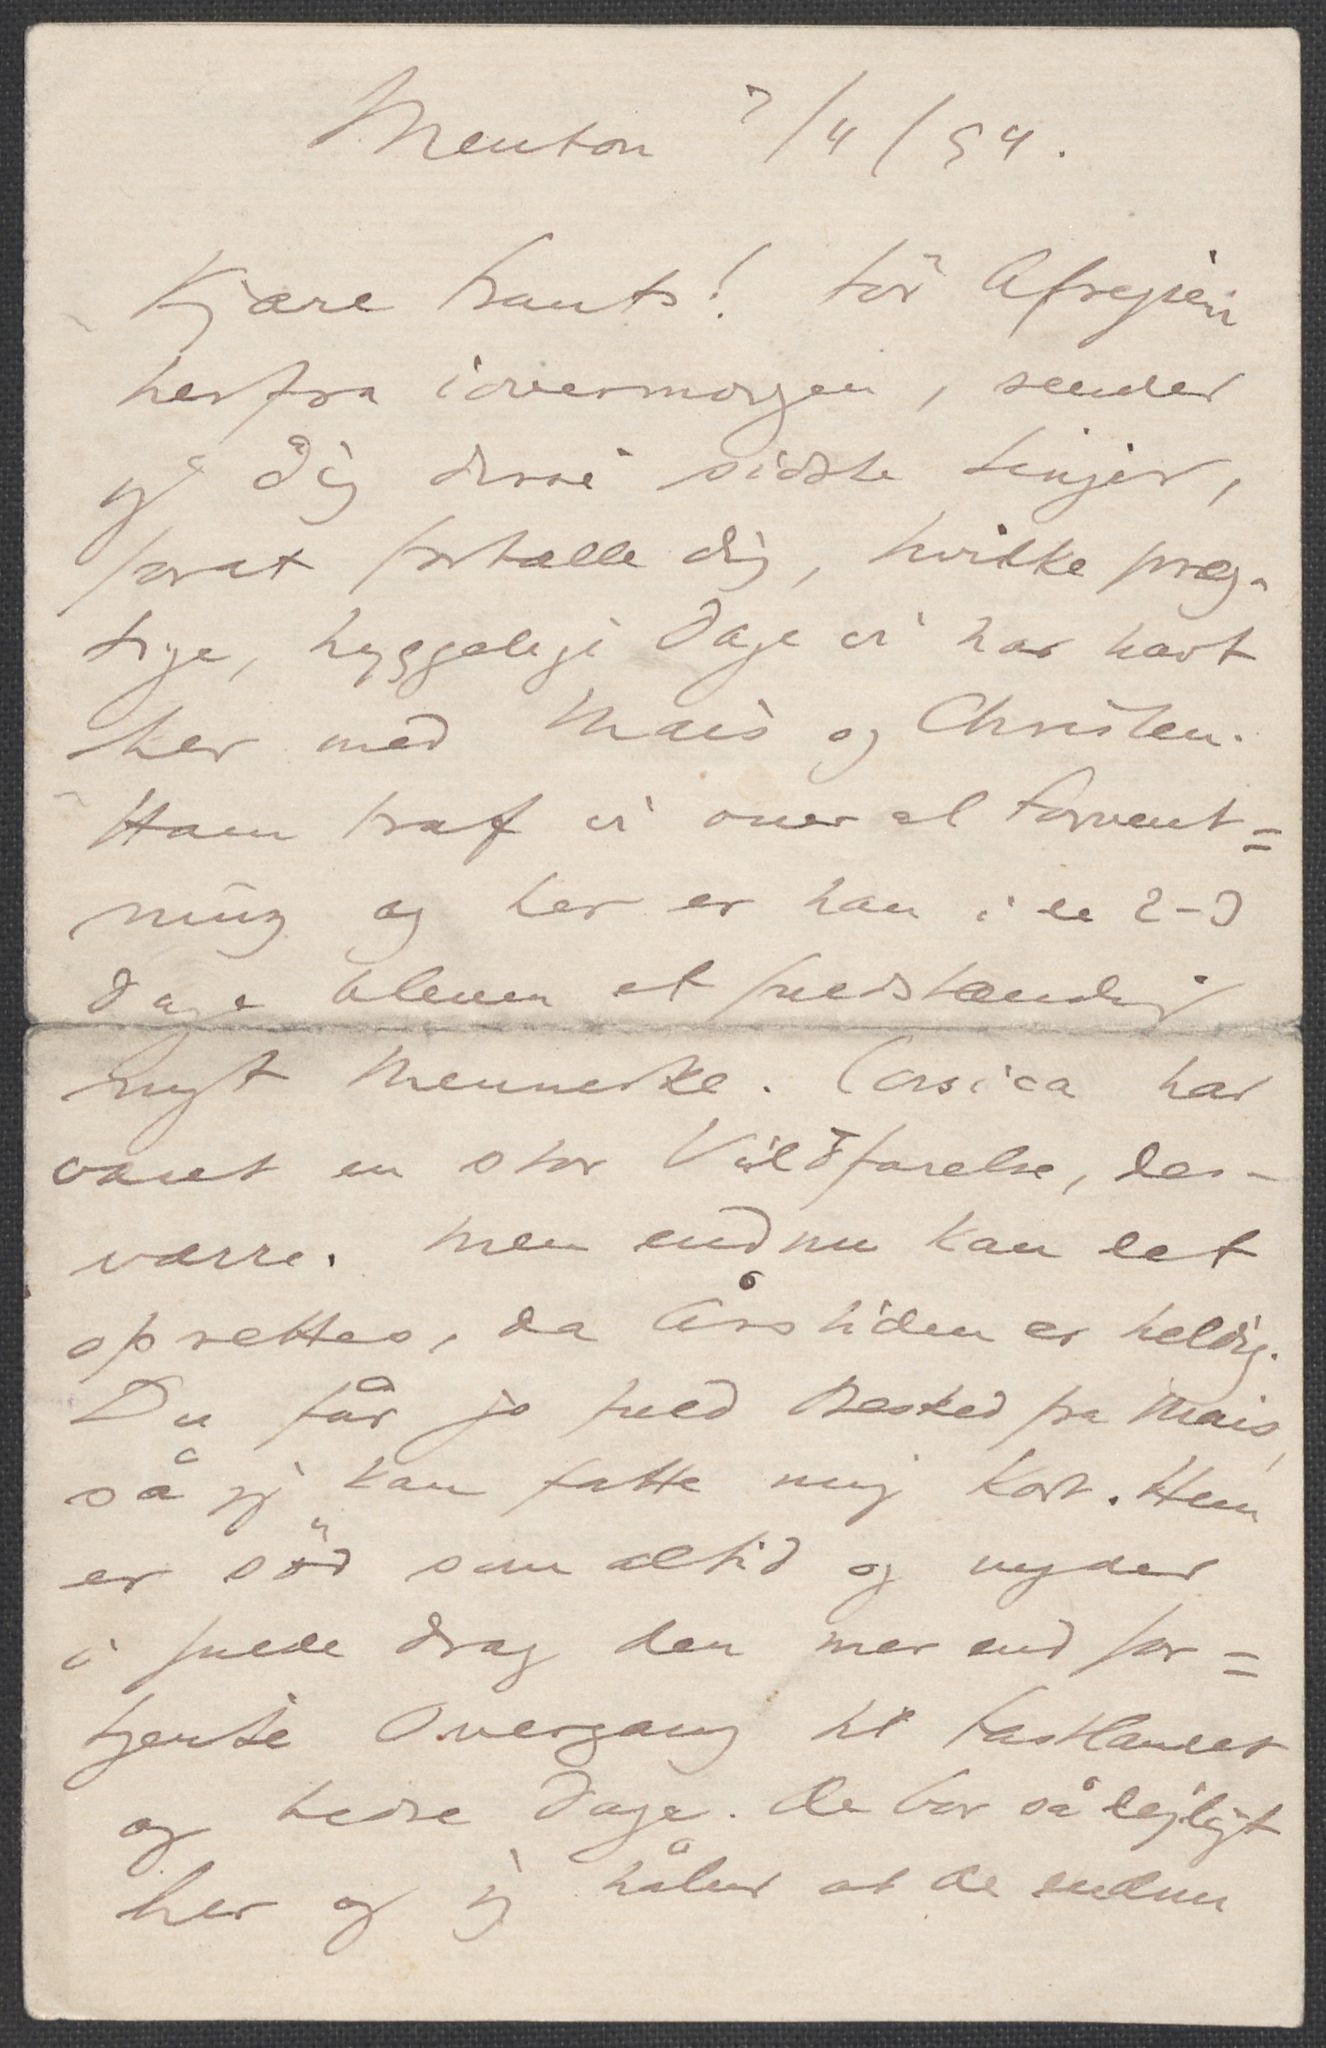 Menton 7/4/94.
Kjære Frants! Før Afrejsen
herfra iovermorgen, sender
jeg Dig disse sidste Linjer,
forat fortælle dig, hvilke præg-
tige, hyggelige Dage vi har havt
her med Mais og Christen.
Ham traf vi over al Forvent=
ning og her er han i de 2-3
Dage bleven et fuldstændig
nyt Menneske. Corsica har
været en stor Vildfarelse, des-
værre. Men endnu kan det
oprettes, da Årstiden er heldig.
Du får jo fuld Besked fra Mais,
så jeg kan fatte mig kort. Hun
er sød som altid og nyder
i fulde Drag den mer end for=
tjente Overgang til Fastlandet
og bedre Dage. De bor så dejligt
her og jeg håber at de endnu